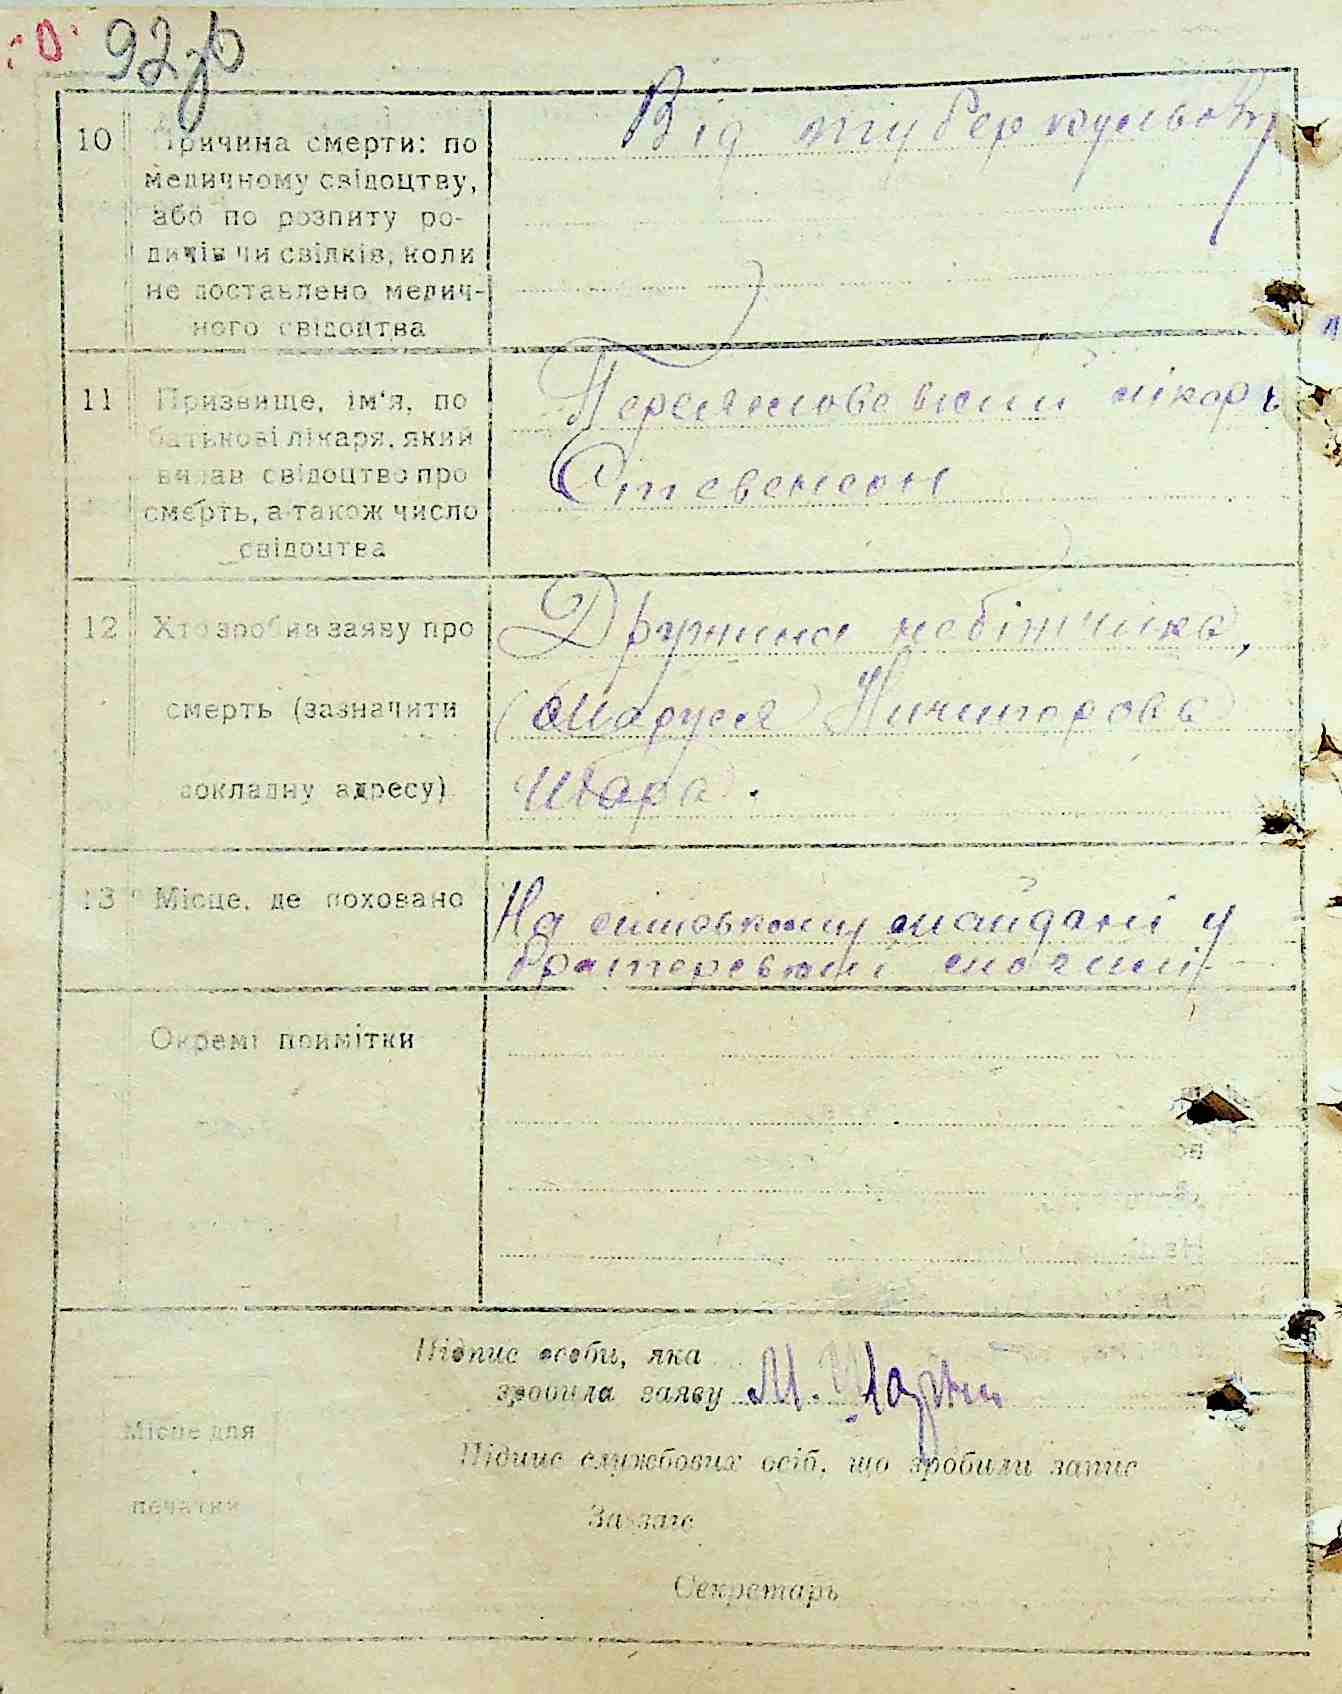 92зв
10 Причина смерти: по
медичному свідоцтву,
або по розпиту ро-
дичів чи свідків, коли
не доставлено медич-
ного свідоцтва
Від туберкульозу
11 Призвище, ім'я, по
батькові лікаря, який
видав свідоцтво про
смерть, а також число
свідоцтва
лікарь
Стевенсон
12 Хто зробив заяву про
смерть (зазначити
докладну адресу)
Дружина небіжчика,
Маруся Ничипорова
Шара.
13 Місце, де поховано
На сільському майдані у
братерській могилі
Окремі примітки
Підпис особи, яка
зробила заяву М.
Місце для
печатки
Підпис службових осіб, що зробили запис
Зав загс
Секретарь